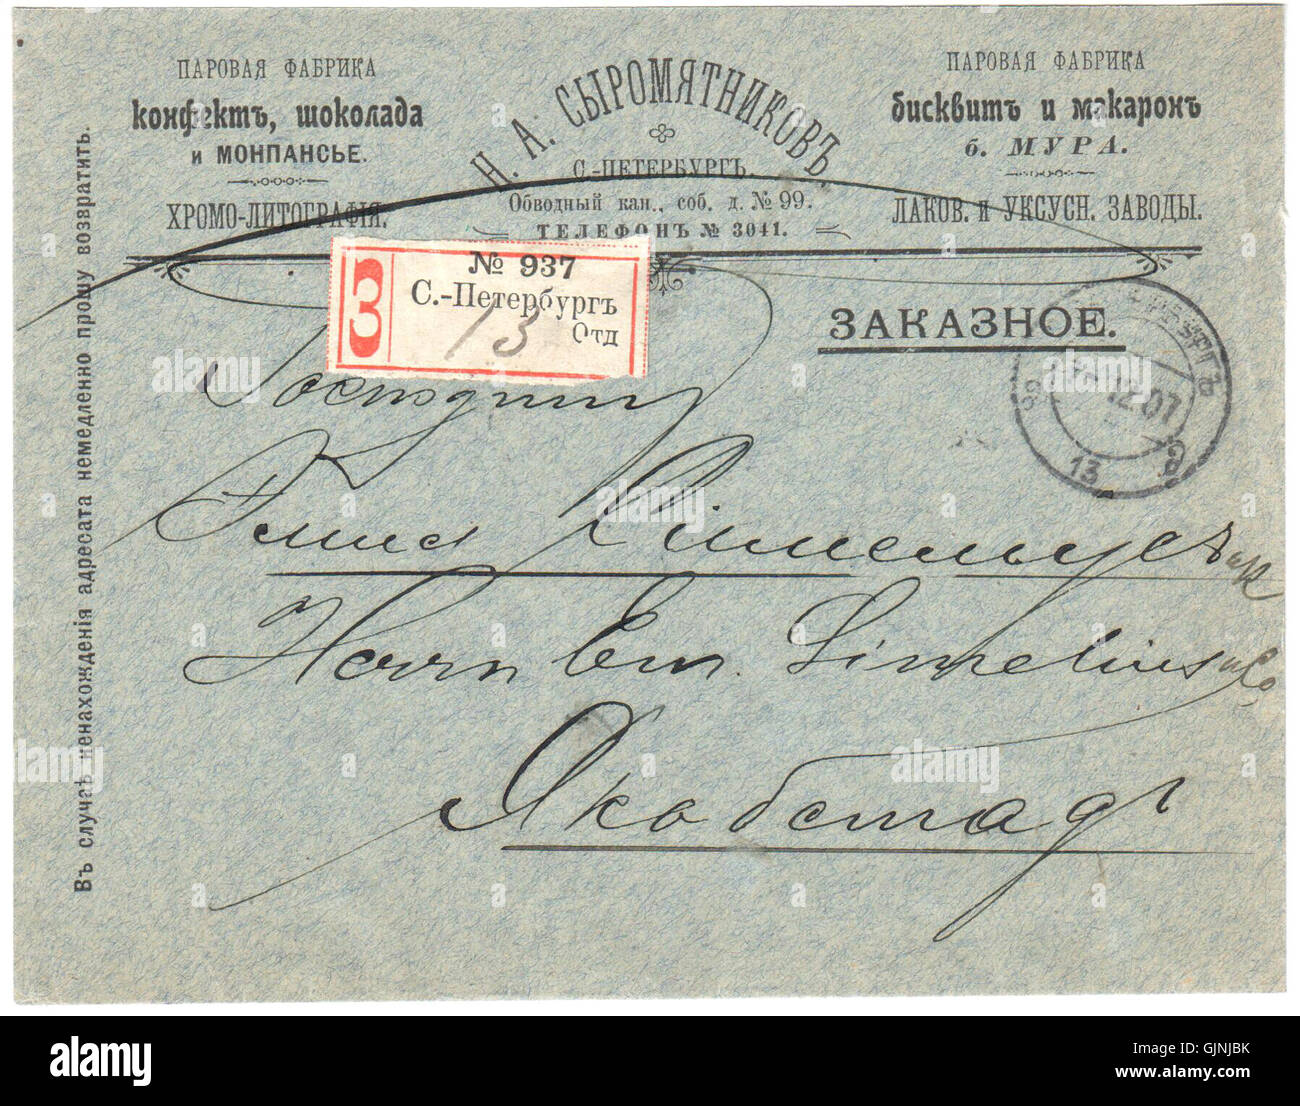 ПАРОВАЯ ФАБРИКА
конфектъ, шоколада
и МОНПАНСЬЕ.
ХРОМО-ЛИТОГРАФІЯ.
Н. А. СЫРОМЯТНИКОВЪ.
С.-ПЕТЕРБУРГЪ.
Обводный кан., соб. д. № 99.
ТЕЛЕФОНЪ № 3041.
ПАРОВАЯ ФАБРИКА
бисквитъ и макаронъ
б. МУРА.
ЛАКОВ. и УКСУСН. ЗАВОДЫ.
Въ случаѣ ненахожденія адресата немедленно прошу возвратить.
З
№ 937
С.-Петербургъ
13 Отд
ЗАКАЗНОЕ.
12.07
13
Господину
Эмил
Herrn Em. Simelius & Co,
Якобстадт
alamy stock photo
GJNJBK
www.alamy.com